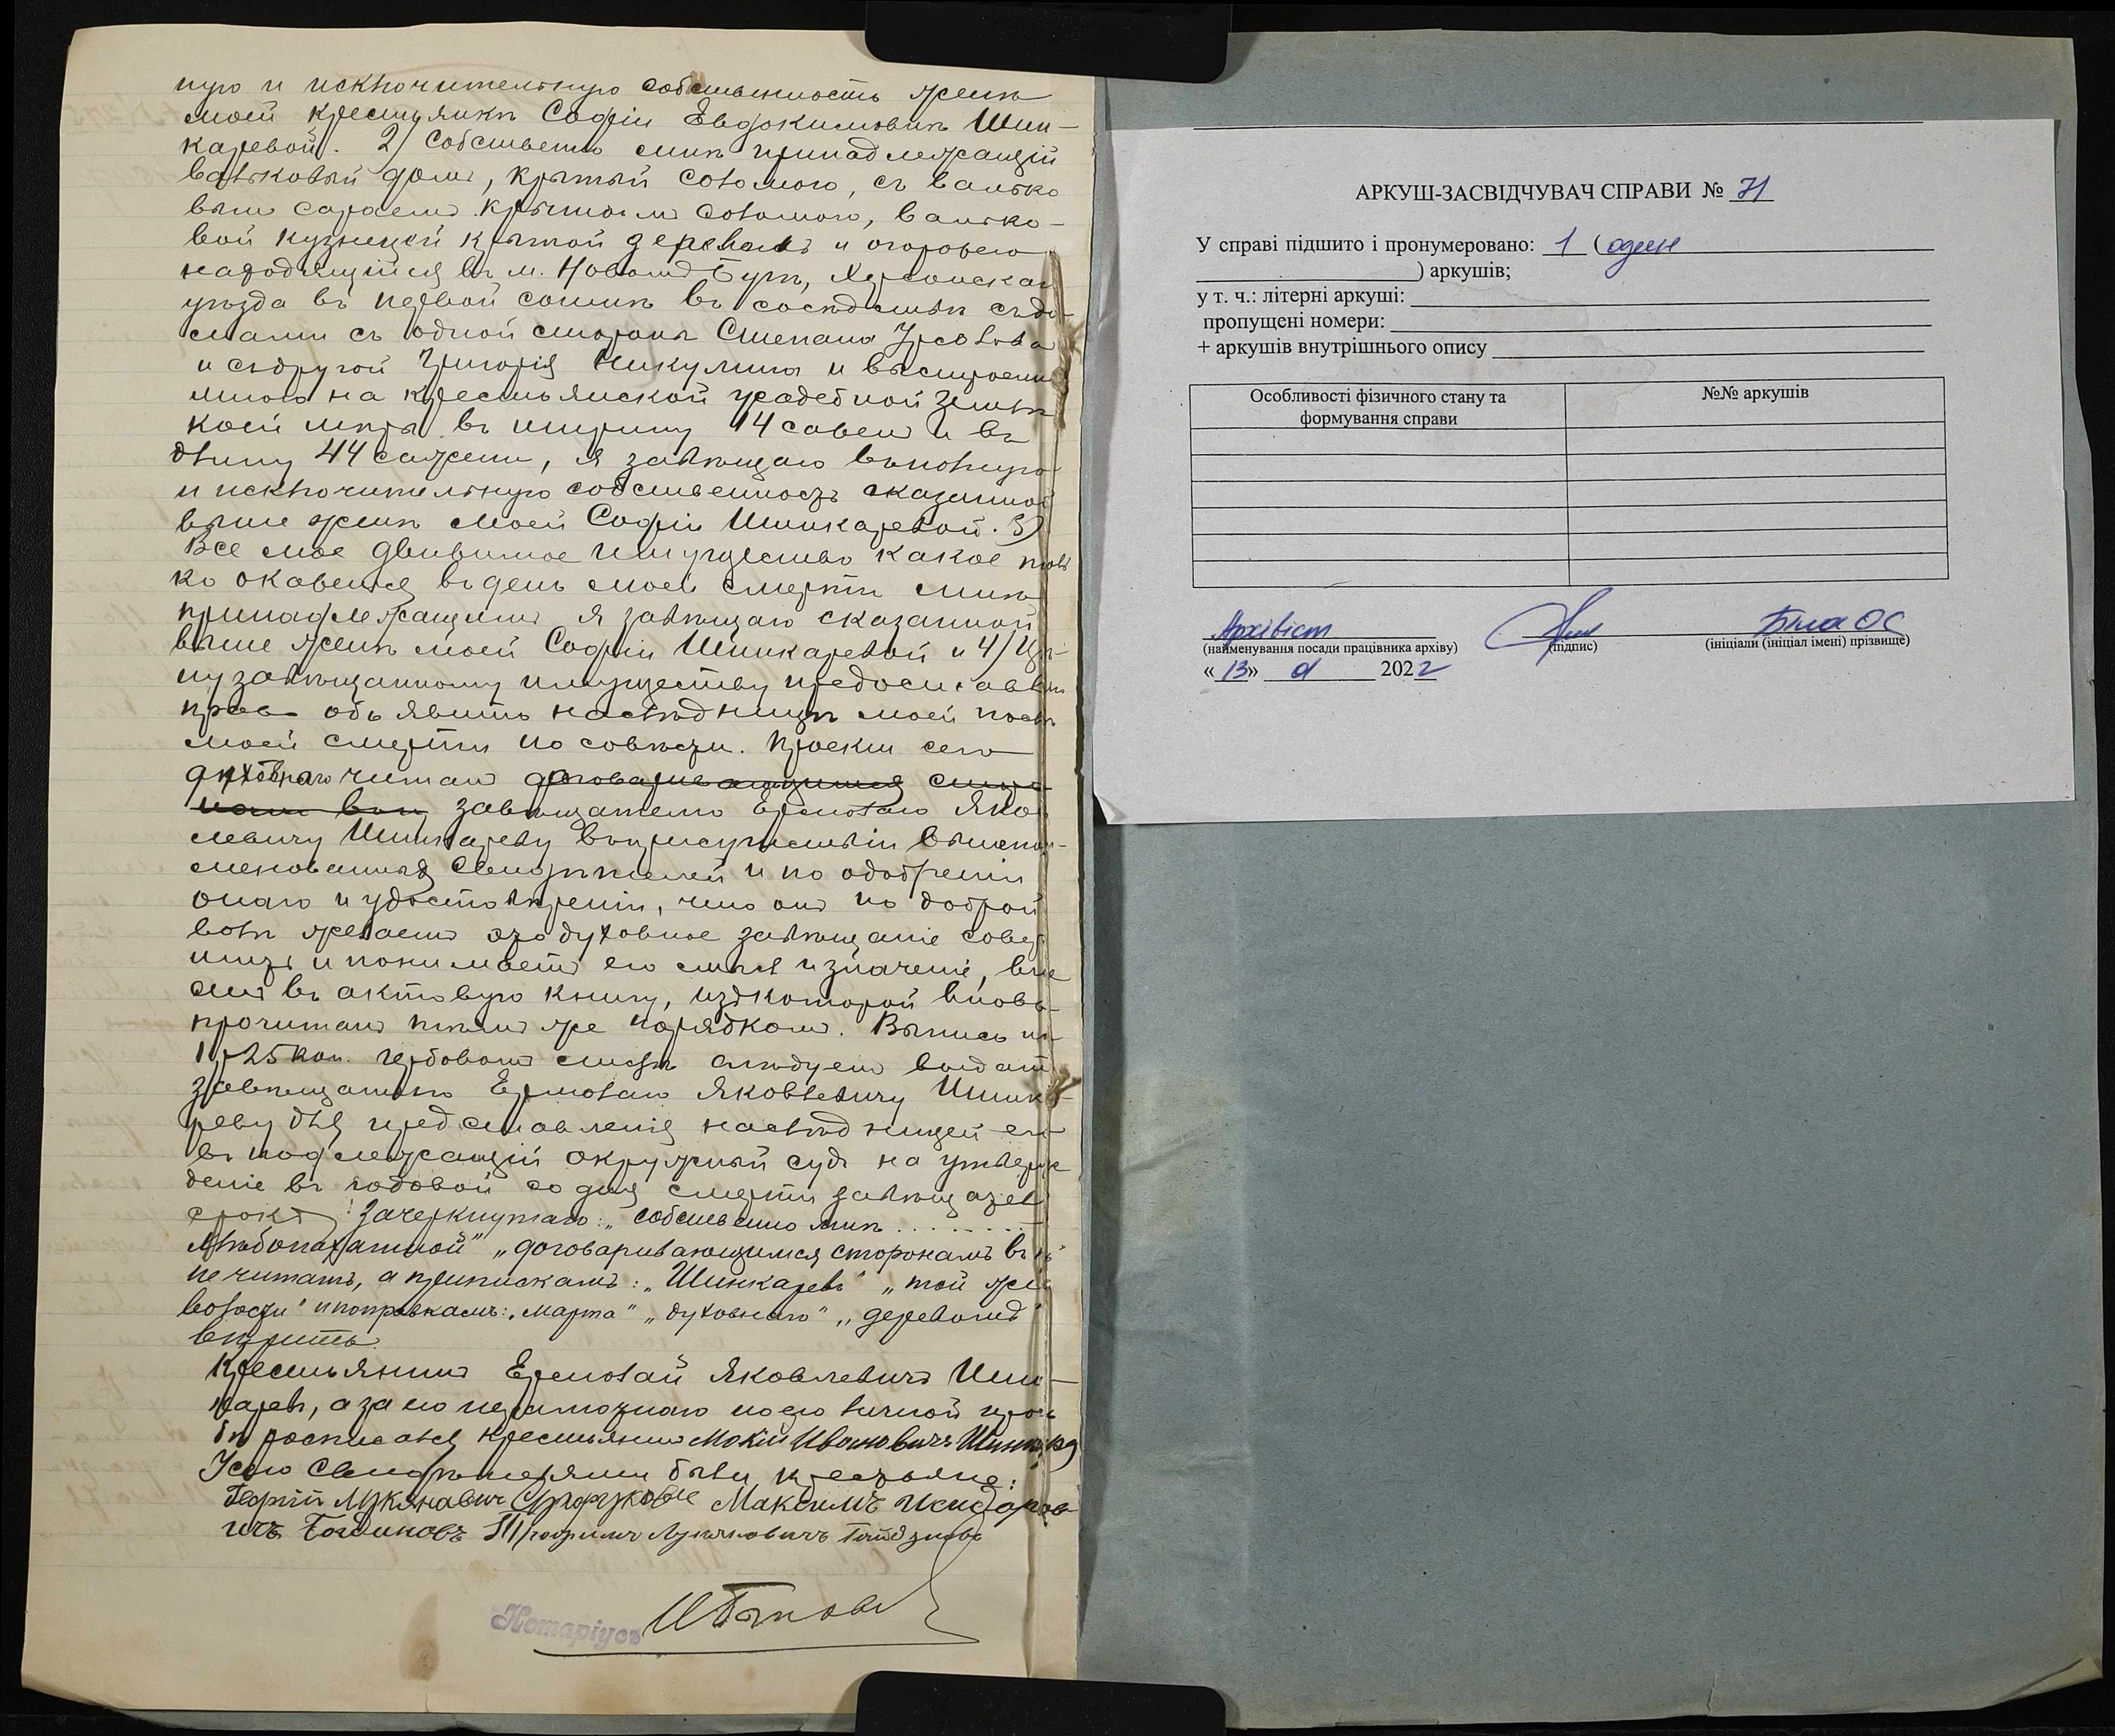 ную и исключительную собственность женѣ
моей крестьянкѣ Софіи Евдокимовнѣ Шин-
каревой. 2) Собственно мнѣ принадлежащій
вальковый домъ, крытый соломою, съ валько
вымъ сараемъ крытымъ соломою, валько-
вой кузницей крытой деревомъ и огорожею
находящійся въ м. Новомъ Бугѣ, Херсонскаго
уѣзда въ первой сотнѣ въ сосѣдствѣ съ до-
мами съ одной стороны Степана
и съ другой Григорія Никулина и выстроенный
мною на крестьянской усадебной землѣ
коей мѣра въ ширину 14 сажен и въ
длину 44 сажени, я завѣщаю въ полную
и исключительную собственность сказанной
выше женѣ моей Софіи Шинкаревой. 3)
Все мое движимое имущество какое толь
ко окажется въ день моей смерти мнѣ
принадлежащимъ я завѣщаю сказанной
выше женѣ моей Софіи Шинкаревой и 4) Цѣ-
ну завѣщанному имуществу предоставляю
право объявить наслѣдницѣ моей послѣ
моей смерти по совѣсти. Проектъ сего
духовнаго читанъ договаривающимся сторо
намъ въ завѣщателю Ермолаю Яков
левичу Шинкареву въ присутствіи вышепои-
менованныхъ свидѣтелей и по одобреніи
онаго и удостовѣреніи, что онъ по доброй
волѣ желаетъ это духовное завѣщаніе совер
шить и понимаетъ его смыслъ и значеніе, вне
сенъ въ актовую книгу, изъ которой вновь
прочитанъ тѣмъ же порядкомъ. Выпись на
1 р 25 коп. гербовомъ листѣ слѣдуетъ выдать
завѣщателю Ермолаю Яковлевичу Шинка-
реву для представленія наслѣдницей его
въ подлежащій окружный судъ на утверж
деніе въ годовой со дня смерти завѣщателя
срокъ. Зачеркнутаго: „собственно мнѣ . . . . . . .
хлѣбопахатной" „договаривающимся сторонамъ въ"
не читать, а припискамъ: „Шинкаревъ" „той же
волости" и поправкамъ: „марта" „духовнаго" „деревомъ"
вѣрить.
Крестьянинъ Ермолай Яковлевичъ Шин-
каревъ, а за его неграмотнаго по его личной прось
бѣ росписался крестьянинъ Мокій Ивановичъ
У сего свидѣтелями были крестьяне:
Георгій Лукяновичъ Максимъ Исидоров
ичъ Трофимъ Лукьяновичъ
Нотаріусъ
АРКУШ-ЗАСВІДЧУВАЧ СПРАВИ № 71
У справі підшито і пронумеровано: 1 (один
) аркушів;
у т. ч.: літерні аркуші:
пропущені номери:
+ аркушів внутрішнього опису
Особливості фізичного стану та формування справи
№№ аркушів
Архівіст Біла ОС
(найменування посади працівника архіву) (підпис) (ініціали (ініціал імені) прізвище)
«13» 2022